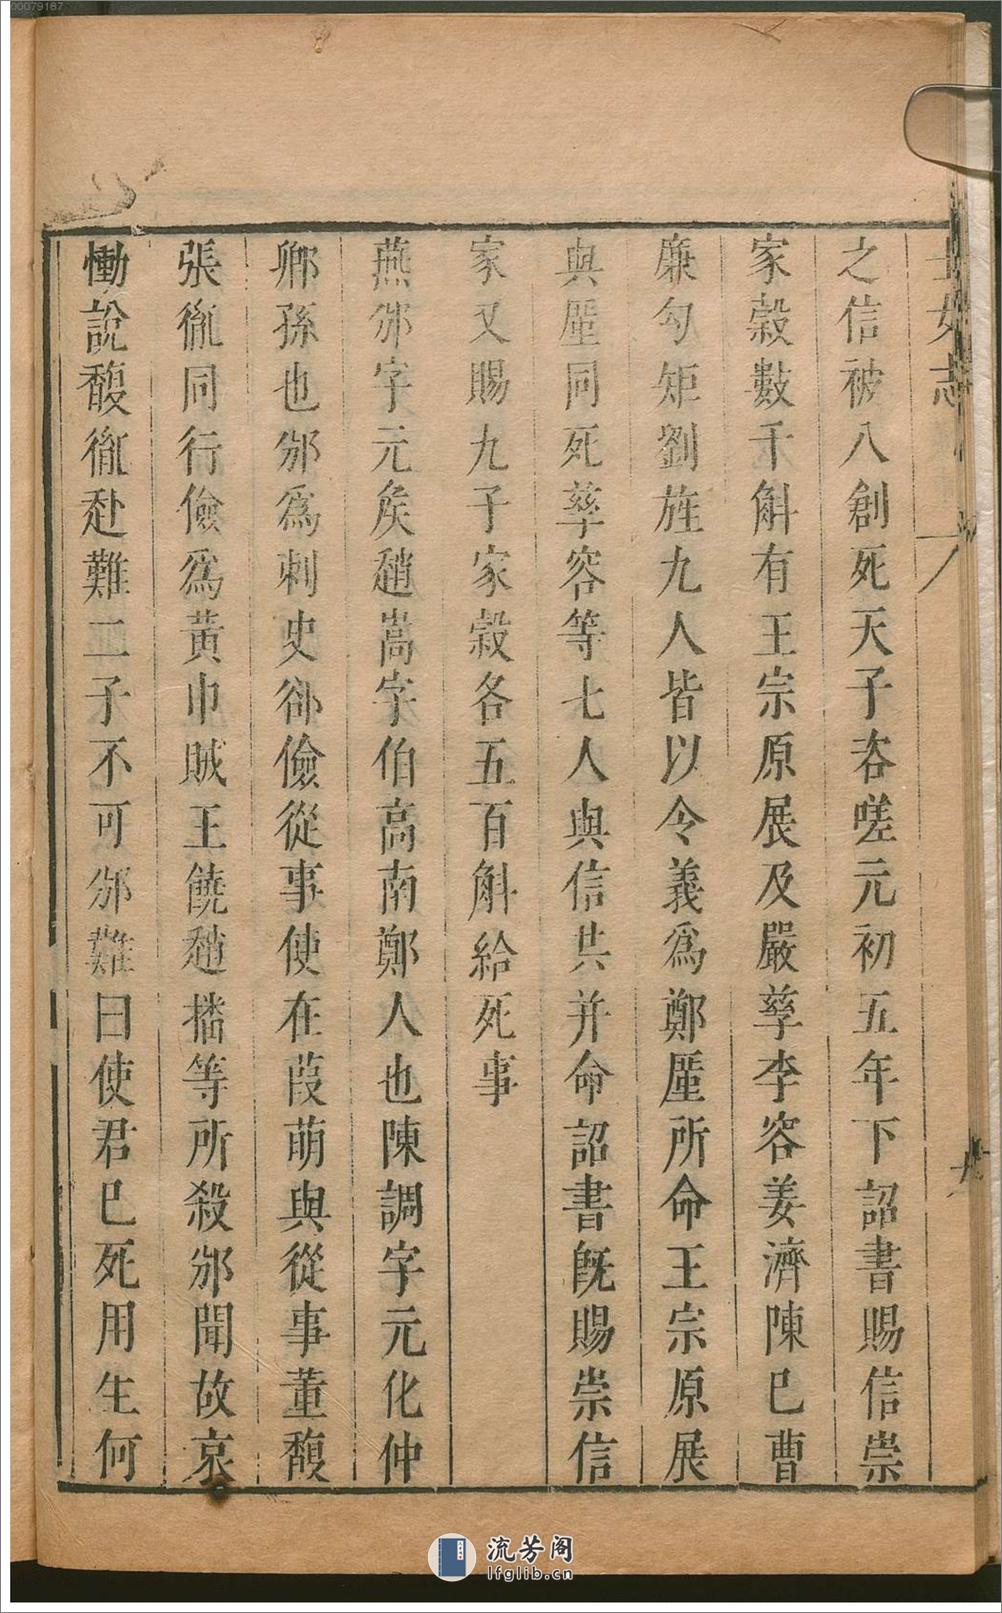 士女志
之信被八創死天子咨嗟元初五年下詔書賜信崇
家穀數千斛有王宗原展及嚴孳李容姜濟陳巳曹
廉勾矩劉旌九人皆以令義為鄭厪所命王宗原展
與厪同死孳容等七人與信共并命詔書既賜崇信
家又賜九子家穀各五百斛給死事
燕邠字元矦趙嵩字伯高南鄭人也陳調字元化仲
卿孫也邠爲刺史郤儉從事使在葭萌與從事董馥
張胤同行儉爲黃巾賊王饒趙播等所殺邠聞故哀
慟說馥胤赴難二子不可邠難曰使君已死用生何
00079187
流芳阁
lfglib.cn